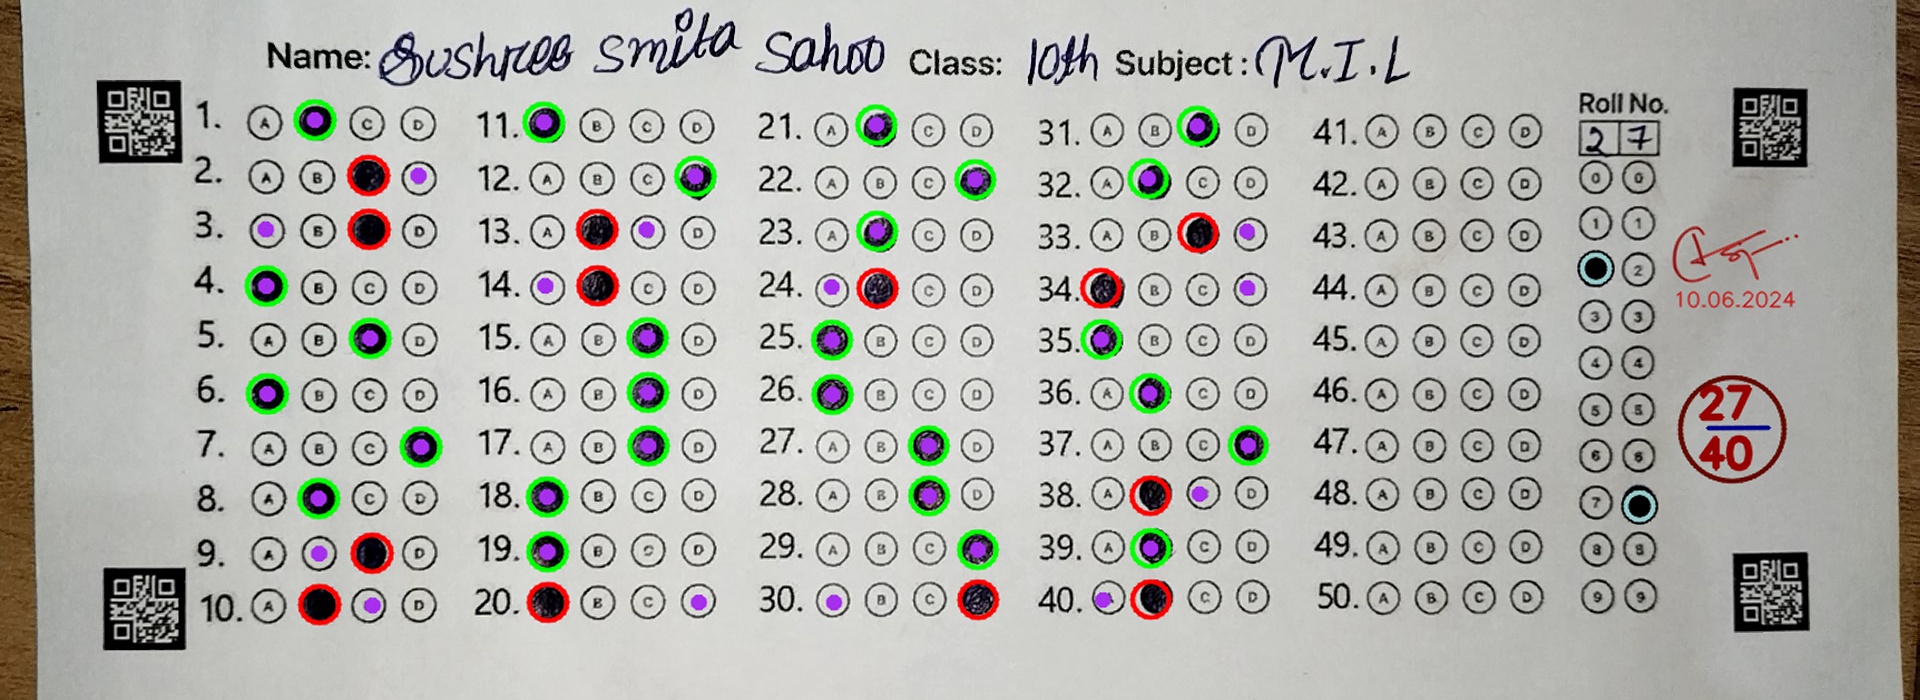 Name: Sushree Smita Sahoo Class: 10th Subject: M.I.L
1. A C D
2. A B
3. B D
4. B C D
5. A B D
6. B C D
7. A B C
8. A C D
9. A D
10. A D
11. B C D
12. A B C
13. A D
14. C D
15. A B D
16. A B D
17. A B D
18. B C D
19. B C D
20. B C
21. A C D
22. A B C
23. A C D
24. C D
25. B C D
26. B C D
27. A B D
28. A B D
29. A B C
30. B C
31. A B D
32. A C D
33. A B
34. B C
35. B C D
36. A C D
37. A B C
38. A D
39. A C D
40. C D
41. A B C D
42. A B C D
43. A B C D
44. A B C D
45. A B C D
46. A B C D
47. A B C D
48. A B C D
49. A B C D
50. A B C D
Roll No.
2 7
0 0
1 1
2
3 3
4 4
5 5
6 6
7
8 8
9 9
10.06.2024
27
40